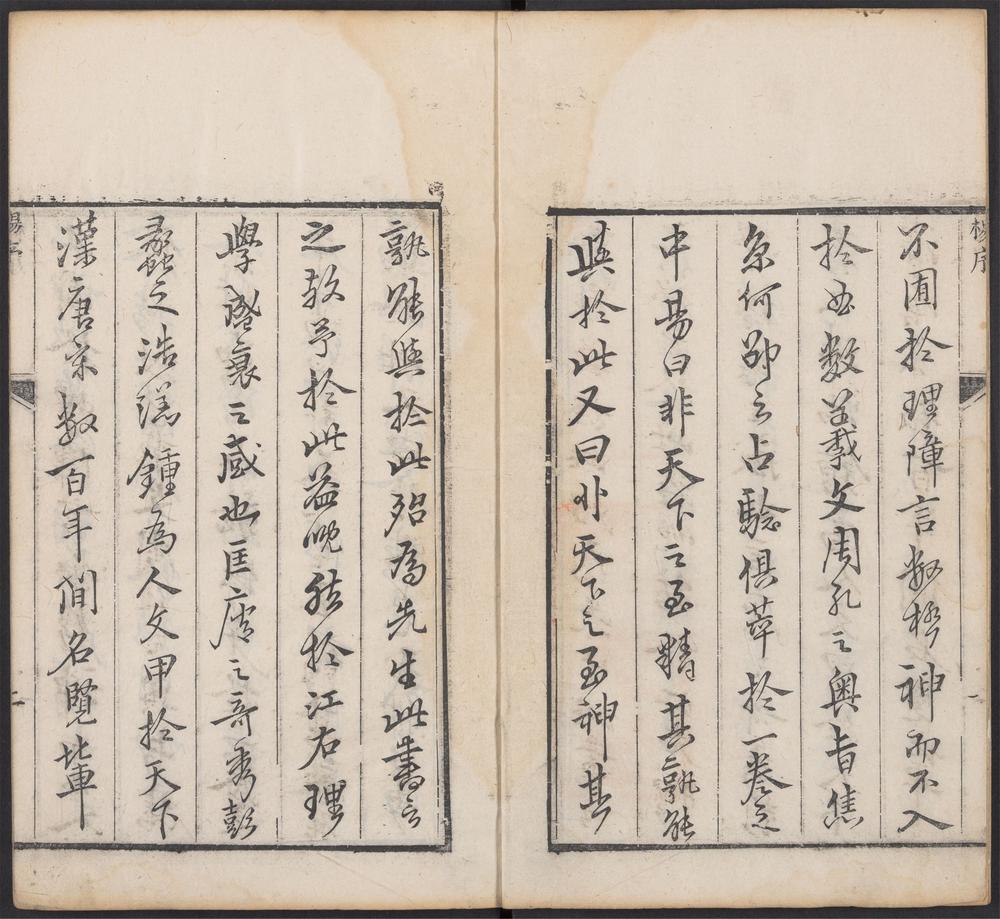 楊序
不囿於理障言數極神而不入
於曲數舉義文周孔之奧旨焦
京何邵之占驗俱萃於一卷之
中易曰非天下之至精其孰能
與於此又曰非天下之至神其
一
孰能與於此殆為先生此書言
之敎予於此益晩然於江右理
學盛衰之感也匡廬之奇秀彭
蠡之浩瀁鍾為人文甲於天下
漢唐宋數百年間名賢輩
楊序
二